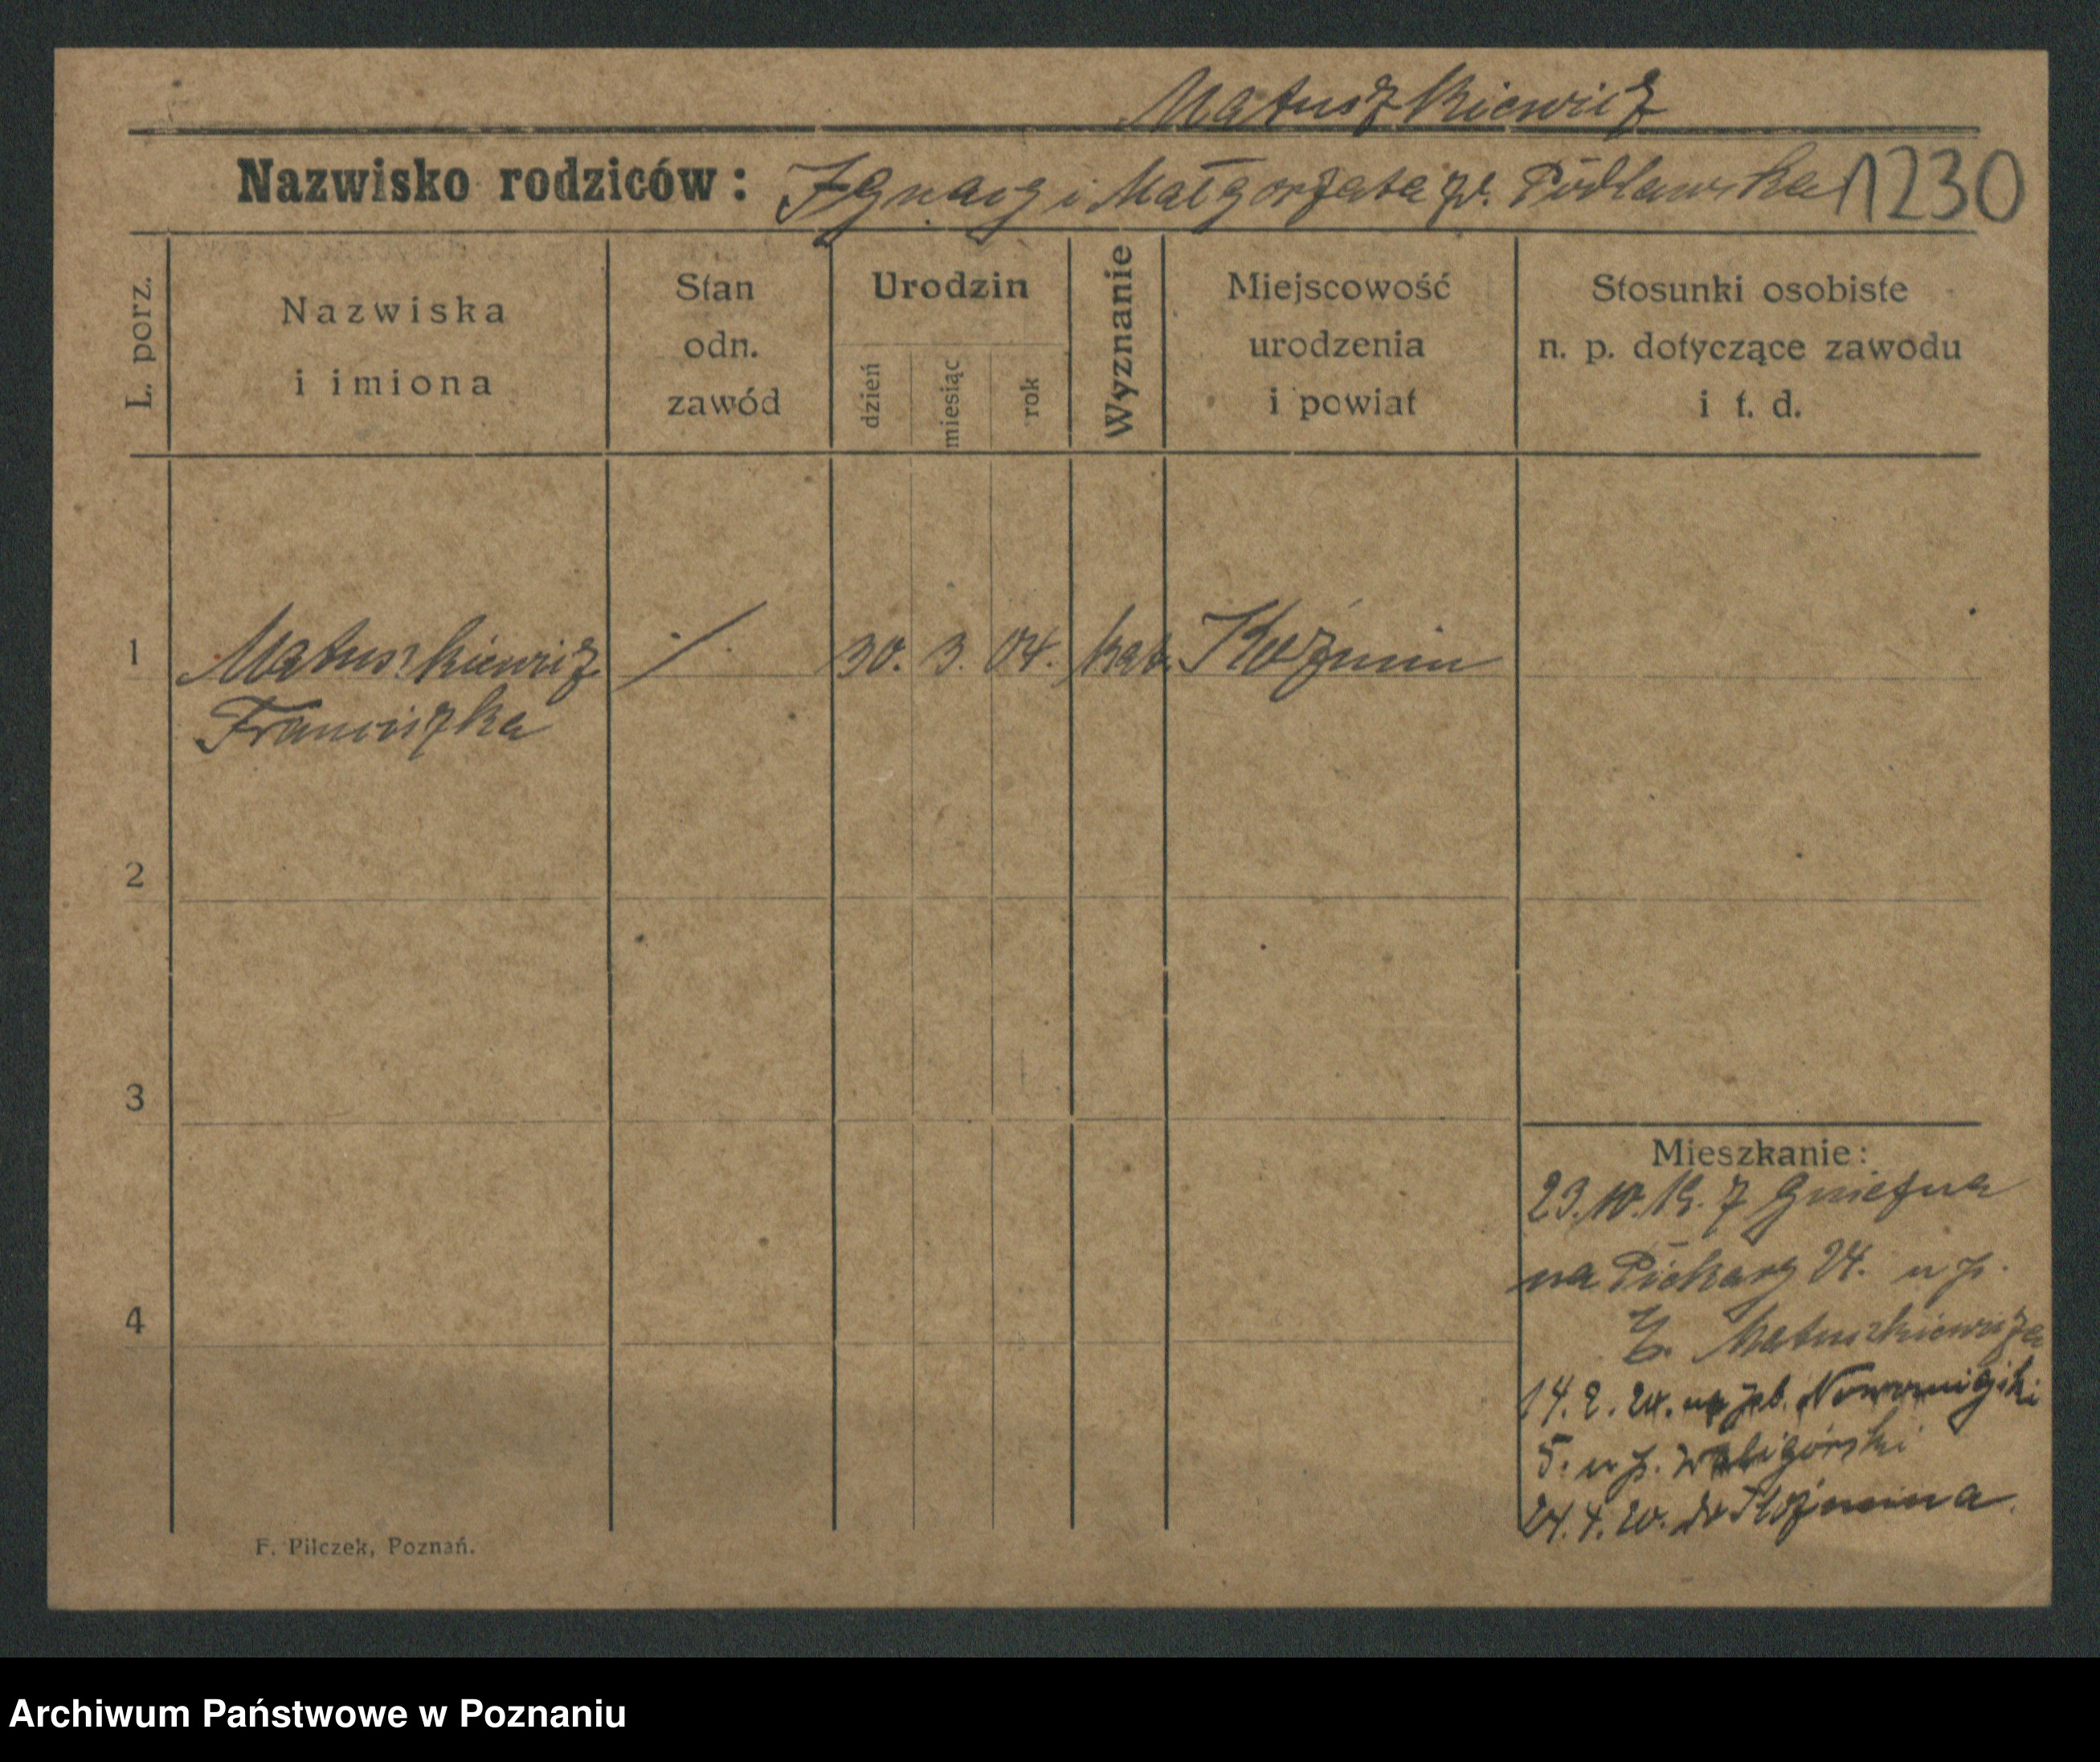 Matuszkiewicz
Nazwisko rodziców: Ignacy i Małgorzata zd. 1230
L. porz.
Nazwiska
i imiona
Stan
odn.
zawód
Urodzin
dzień
miesiąc
rok
Wyznanie
Miejscowość
urodzenia
i powiat
Stosunki osobiste
n. p. dotyczące zawodu
i t. d.
1 Matuszkiewicz / 30. 3. 04. kat. Koźmin
Franciszka
2
3
4
Mieszkanie:
23.10.19. z Gniezna
na Piekary 24. u p.
Matuszkiewicza
14. 2. 20. na
5. u p. Waligórski
24. 4. 20. do Koźmina.
F. Pilczek, Poznań.
Archiwum Państwowe w Poznaniu